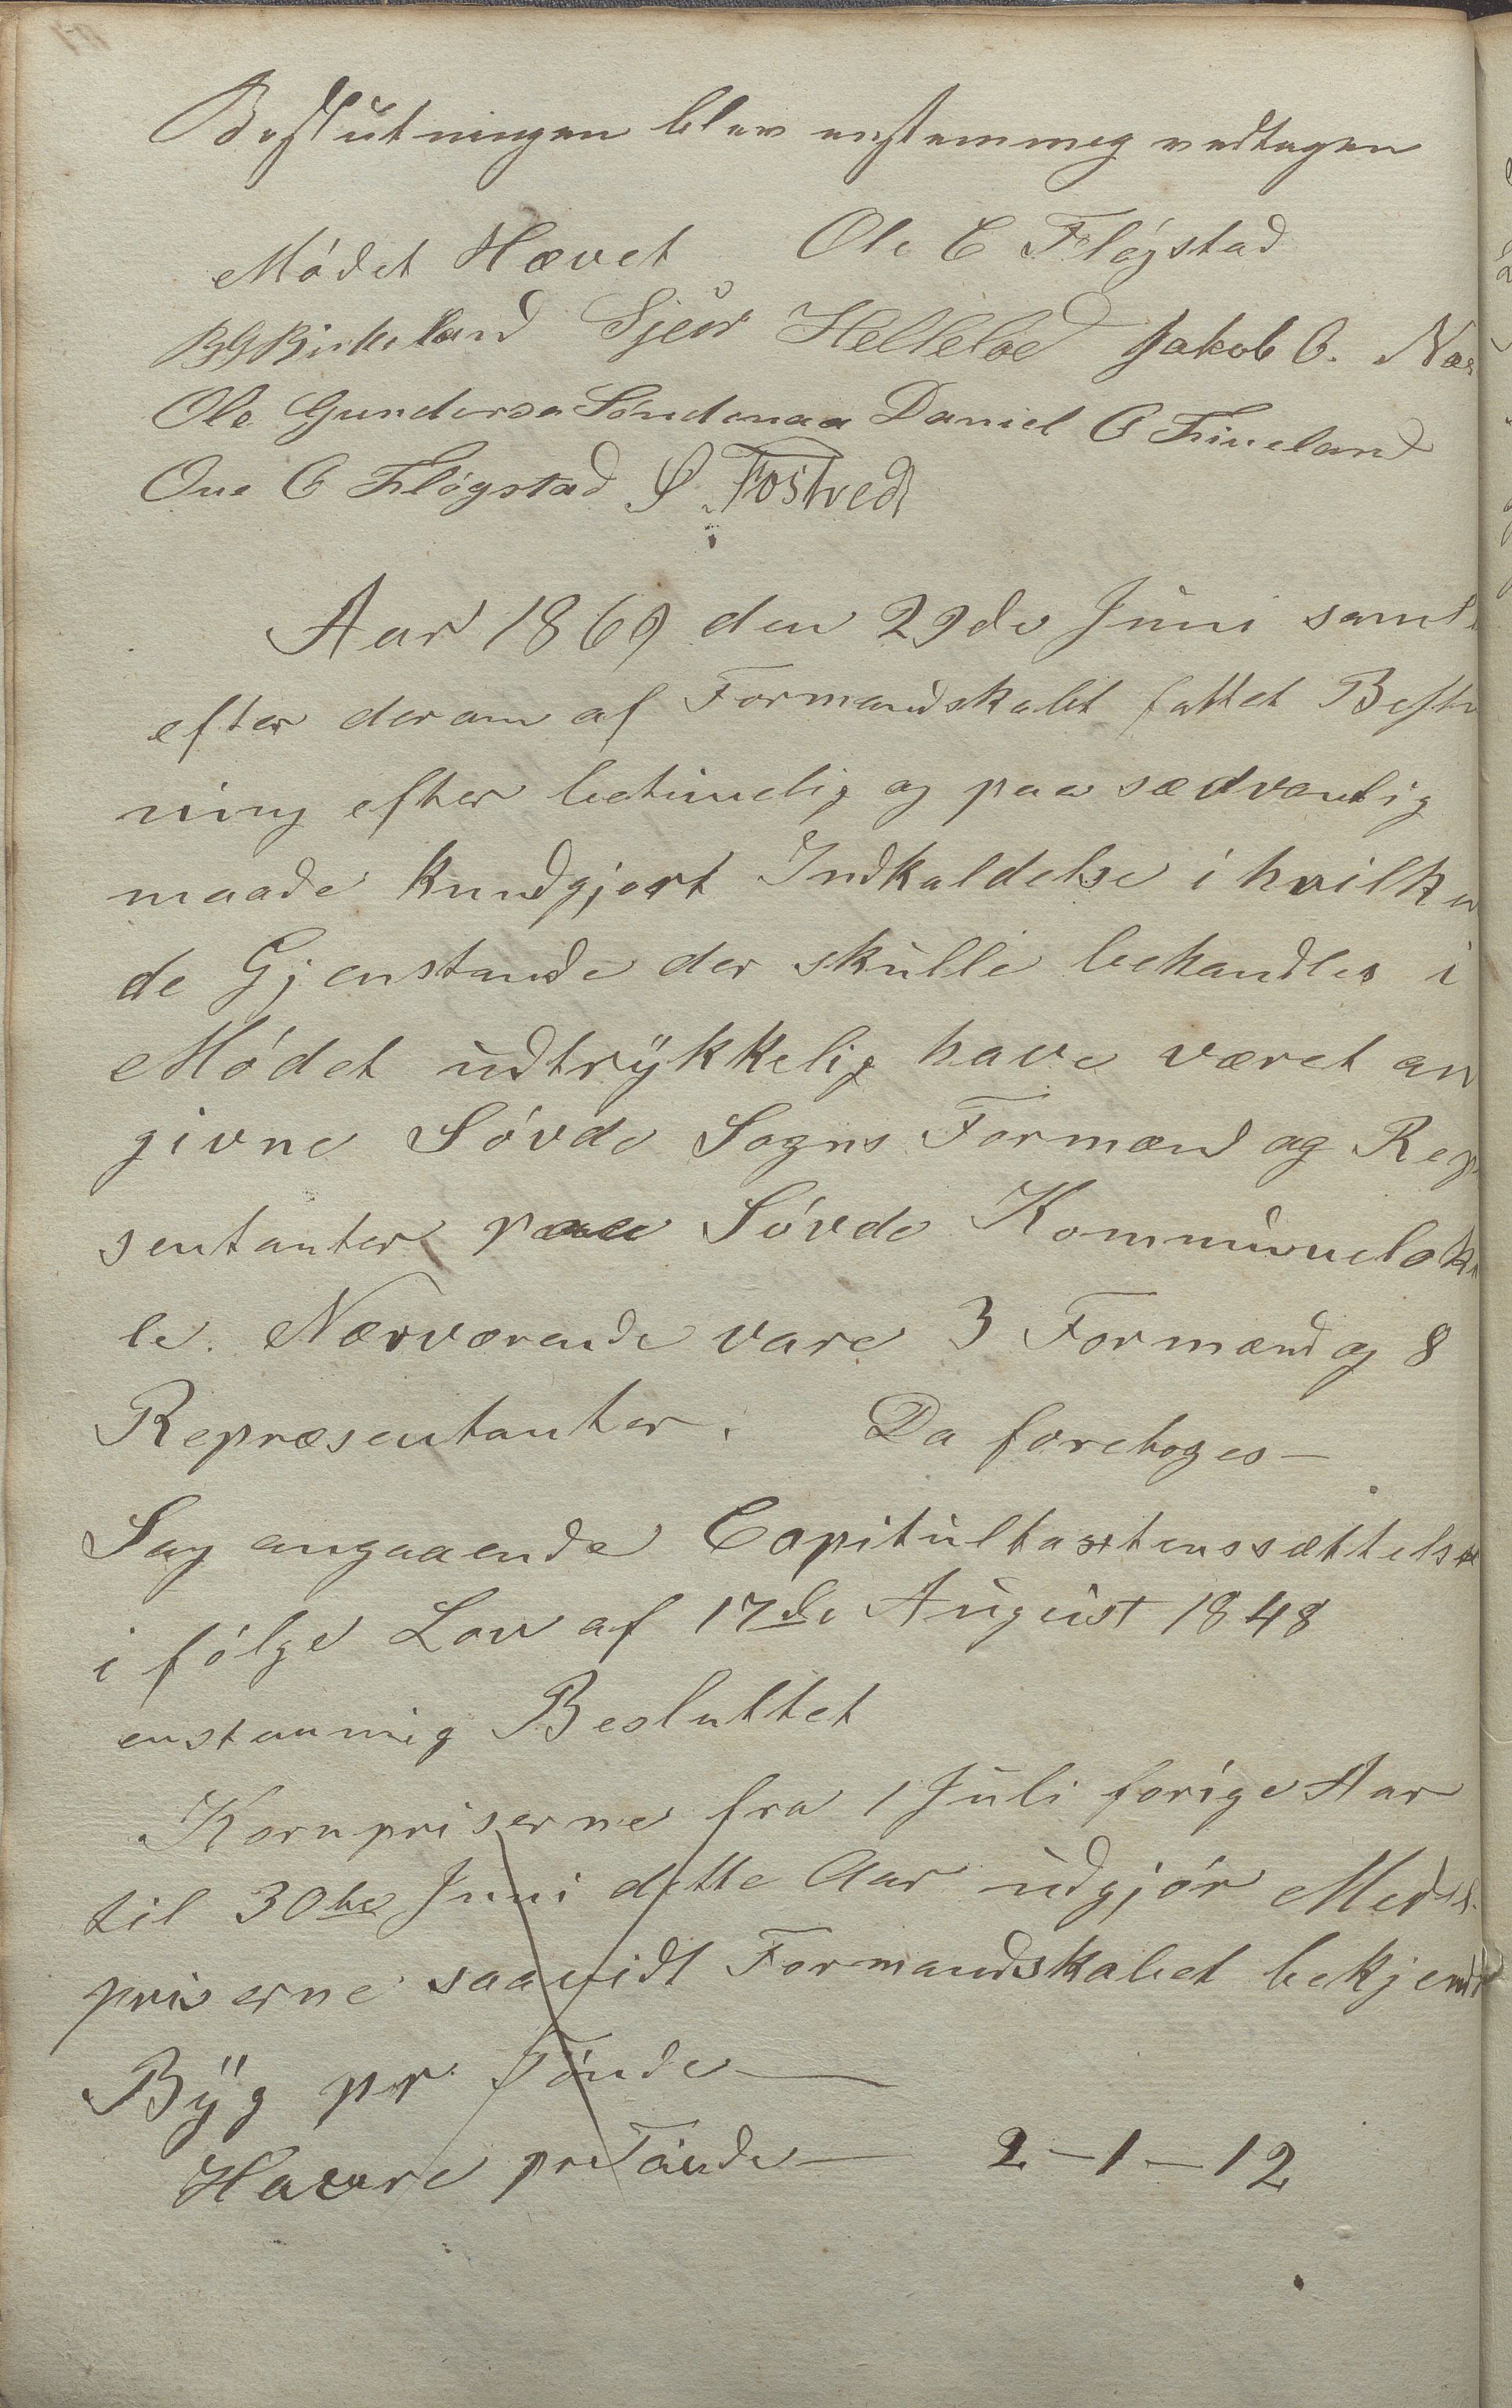 Beslutningen blev enstemmig vedtagen
Mødet Hævet Ole E Fløgstad
BGBirkeland Sjur Helleloe Jakob O. Næs
Ole Gundersen Søndenaa Daniel O Tineland
One O Fløgstad S. Fostvedt
Aar 1869 den 29de Juni saml
efter derom af Formandskabet fattet Beslu
ning efter betimelig og paa sædvanlig
maade kundgjort Indkaldelse i hvilken
de Gjenstande der skulle behandles i
Mødet udtrykkelig have været an
givne Søvde Sogns Formænd og Rep
sentanter paa Søvde Kommunelok
le. Nærværende vare 3 Formænd og 8
Repræsentanter. Da foretoges—
Sag angaaende Capitultaxtenssættelse
i følge Lov af 17de August 1848
enstemmig Besluttet
Kornpriserne fra 1 Juli forige Aar
til 30te Juni dette Aar udgjør Medel
priserne saavidt Formandskabet bekjendt
Byg pr Tønde —
Havre pr Tønde — 2-1-12